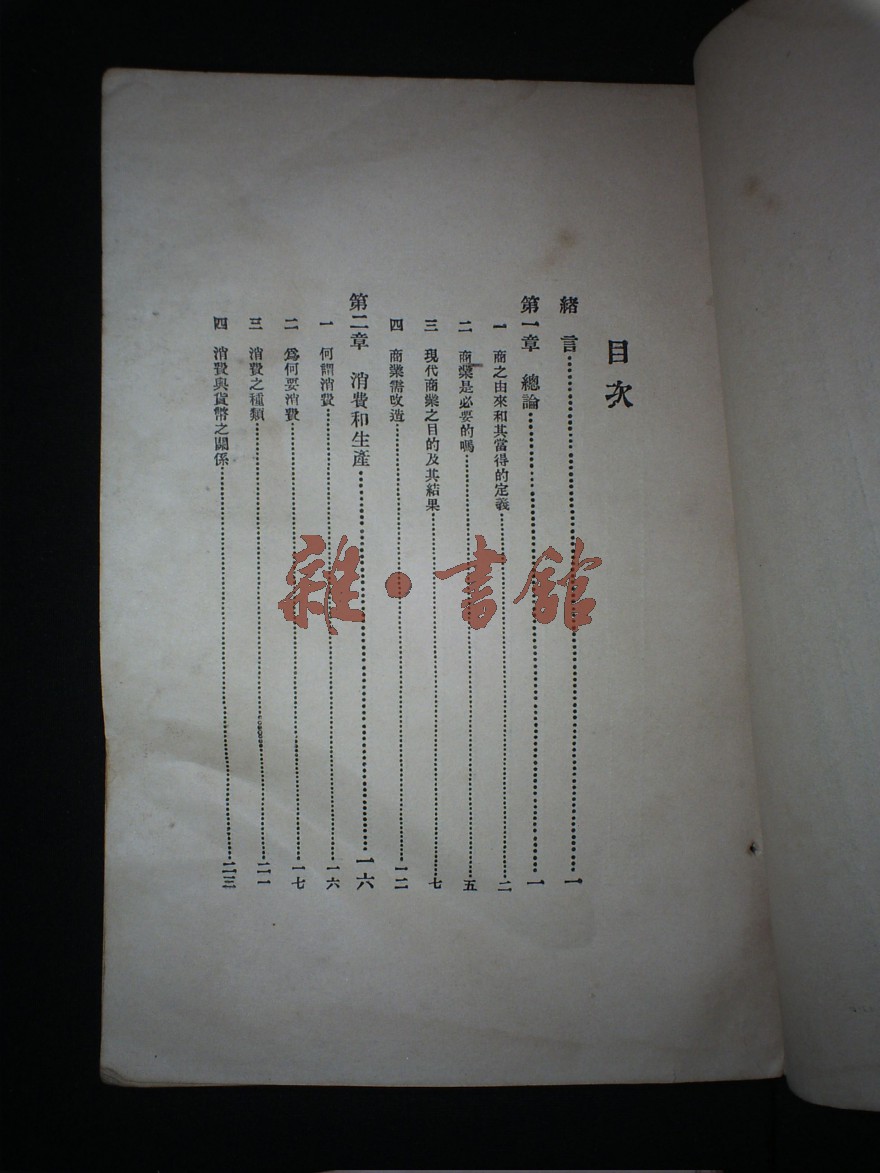 目次
緒言⋯⋯⋯⋯一
第一章 總論⋯⋯⋯⋯一
一 商之由來和其當得的定義⋯⋯⋯⋯二
二 商業是必要的嗎⋯⋯⋯⋯五
三 現代商業之目的及其結果⋯⋯⋯⋯七
四 商業需改造⋯⋯⋯⋯一二
第二章 消費和生產⋯⋯⋯⋯一六
一 何謂消費⋯⋯⋯⋯一六
二 爲何要消費⋯⋯⋯⋯一七
三 消費之種類⋯⋯⋯⋯二一
四 消費與貨幣之關係⋯⋯⋯⋯二三
雜·書館